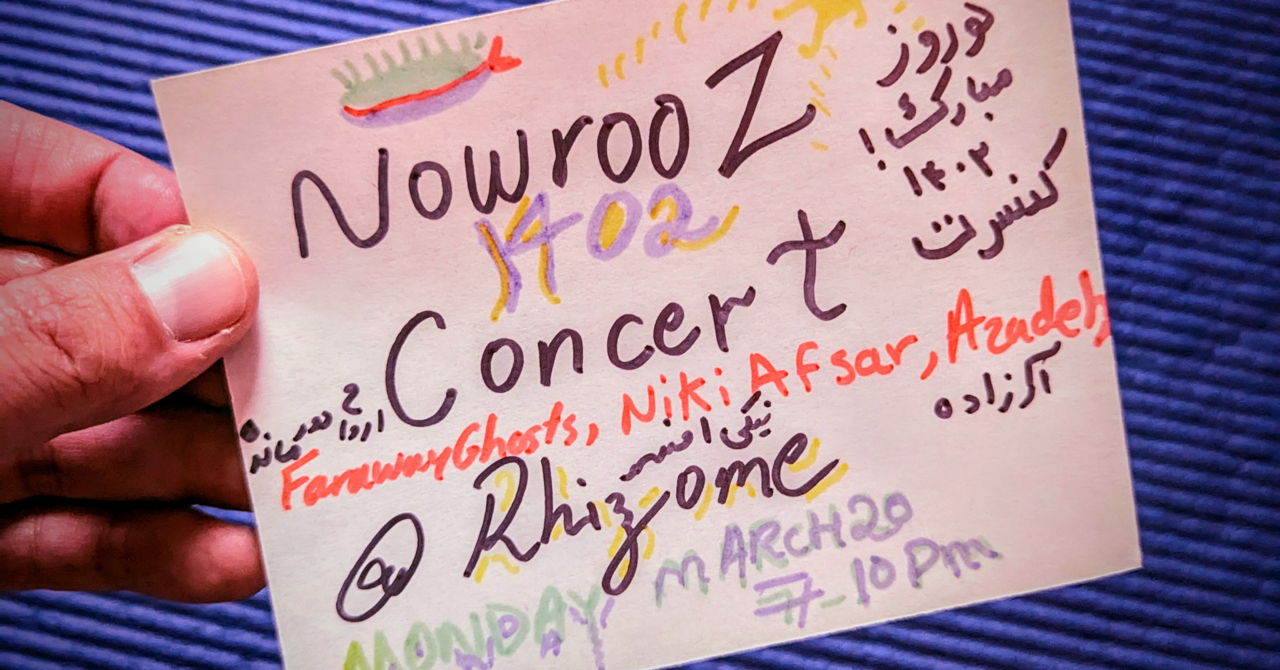 NowrooZ
1402
Concert
FarawayGhosts, Niki Afsar, Azadeh,
@ Rhizome
MONDAY MARCH 20
7-10 Pm
نوروز
مبارک!
۱۴۰۲
کنسرت
ارواح
نیکی افسر